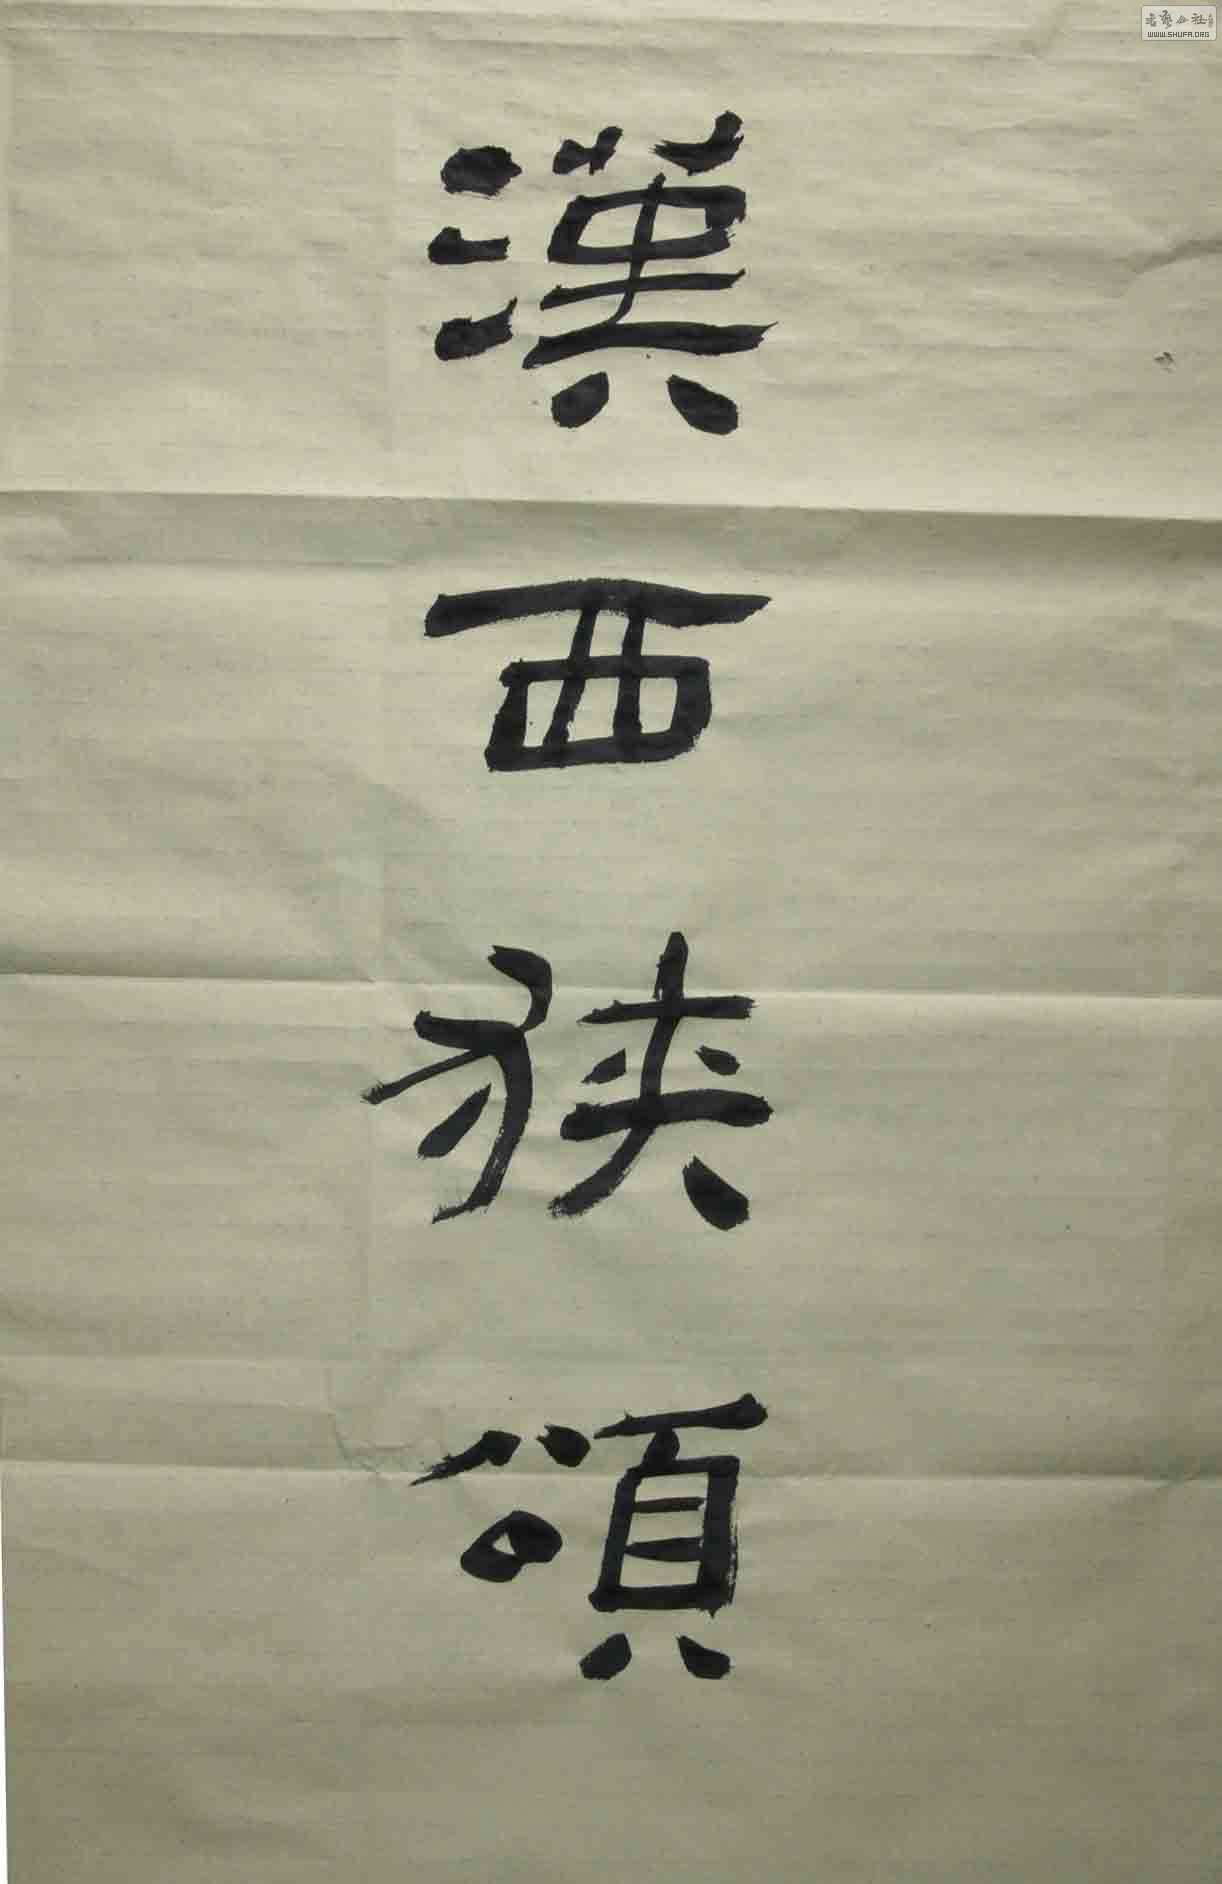 漢西狹頌
書藝公社
WWW.SHUFA.ORG